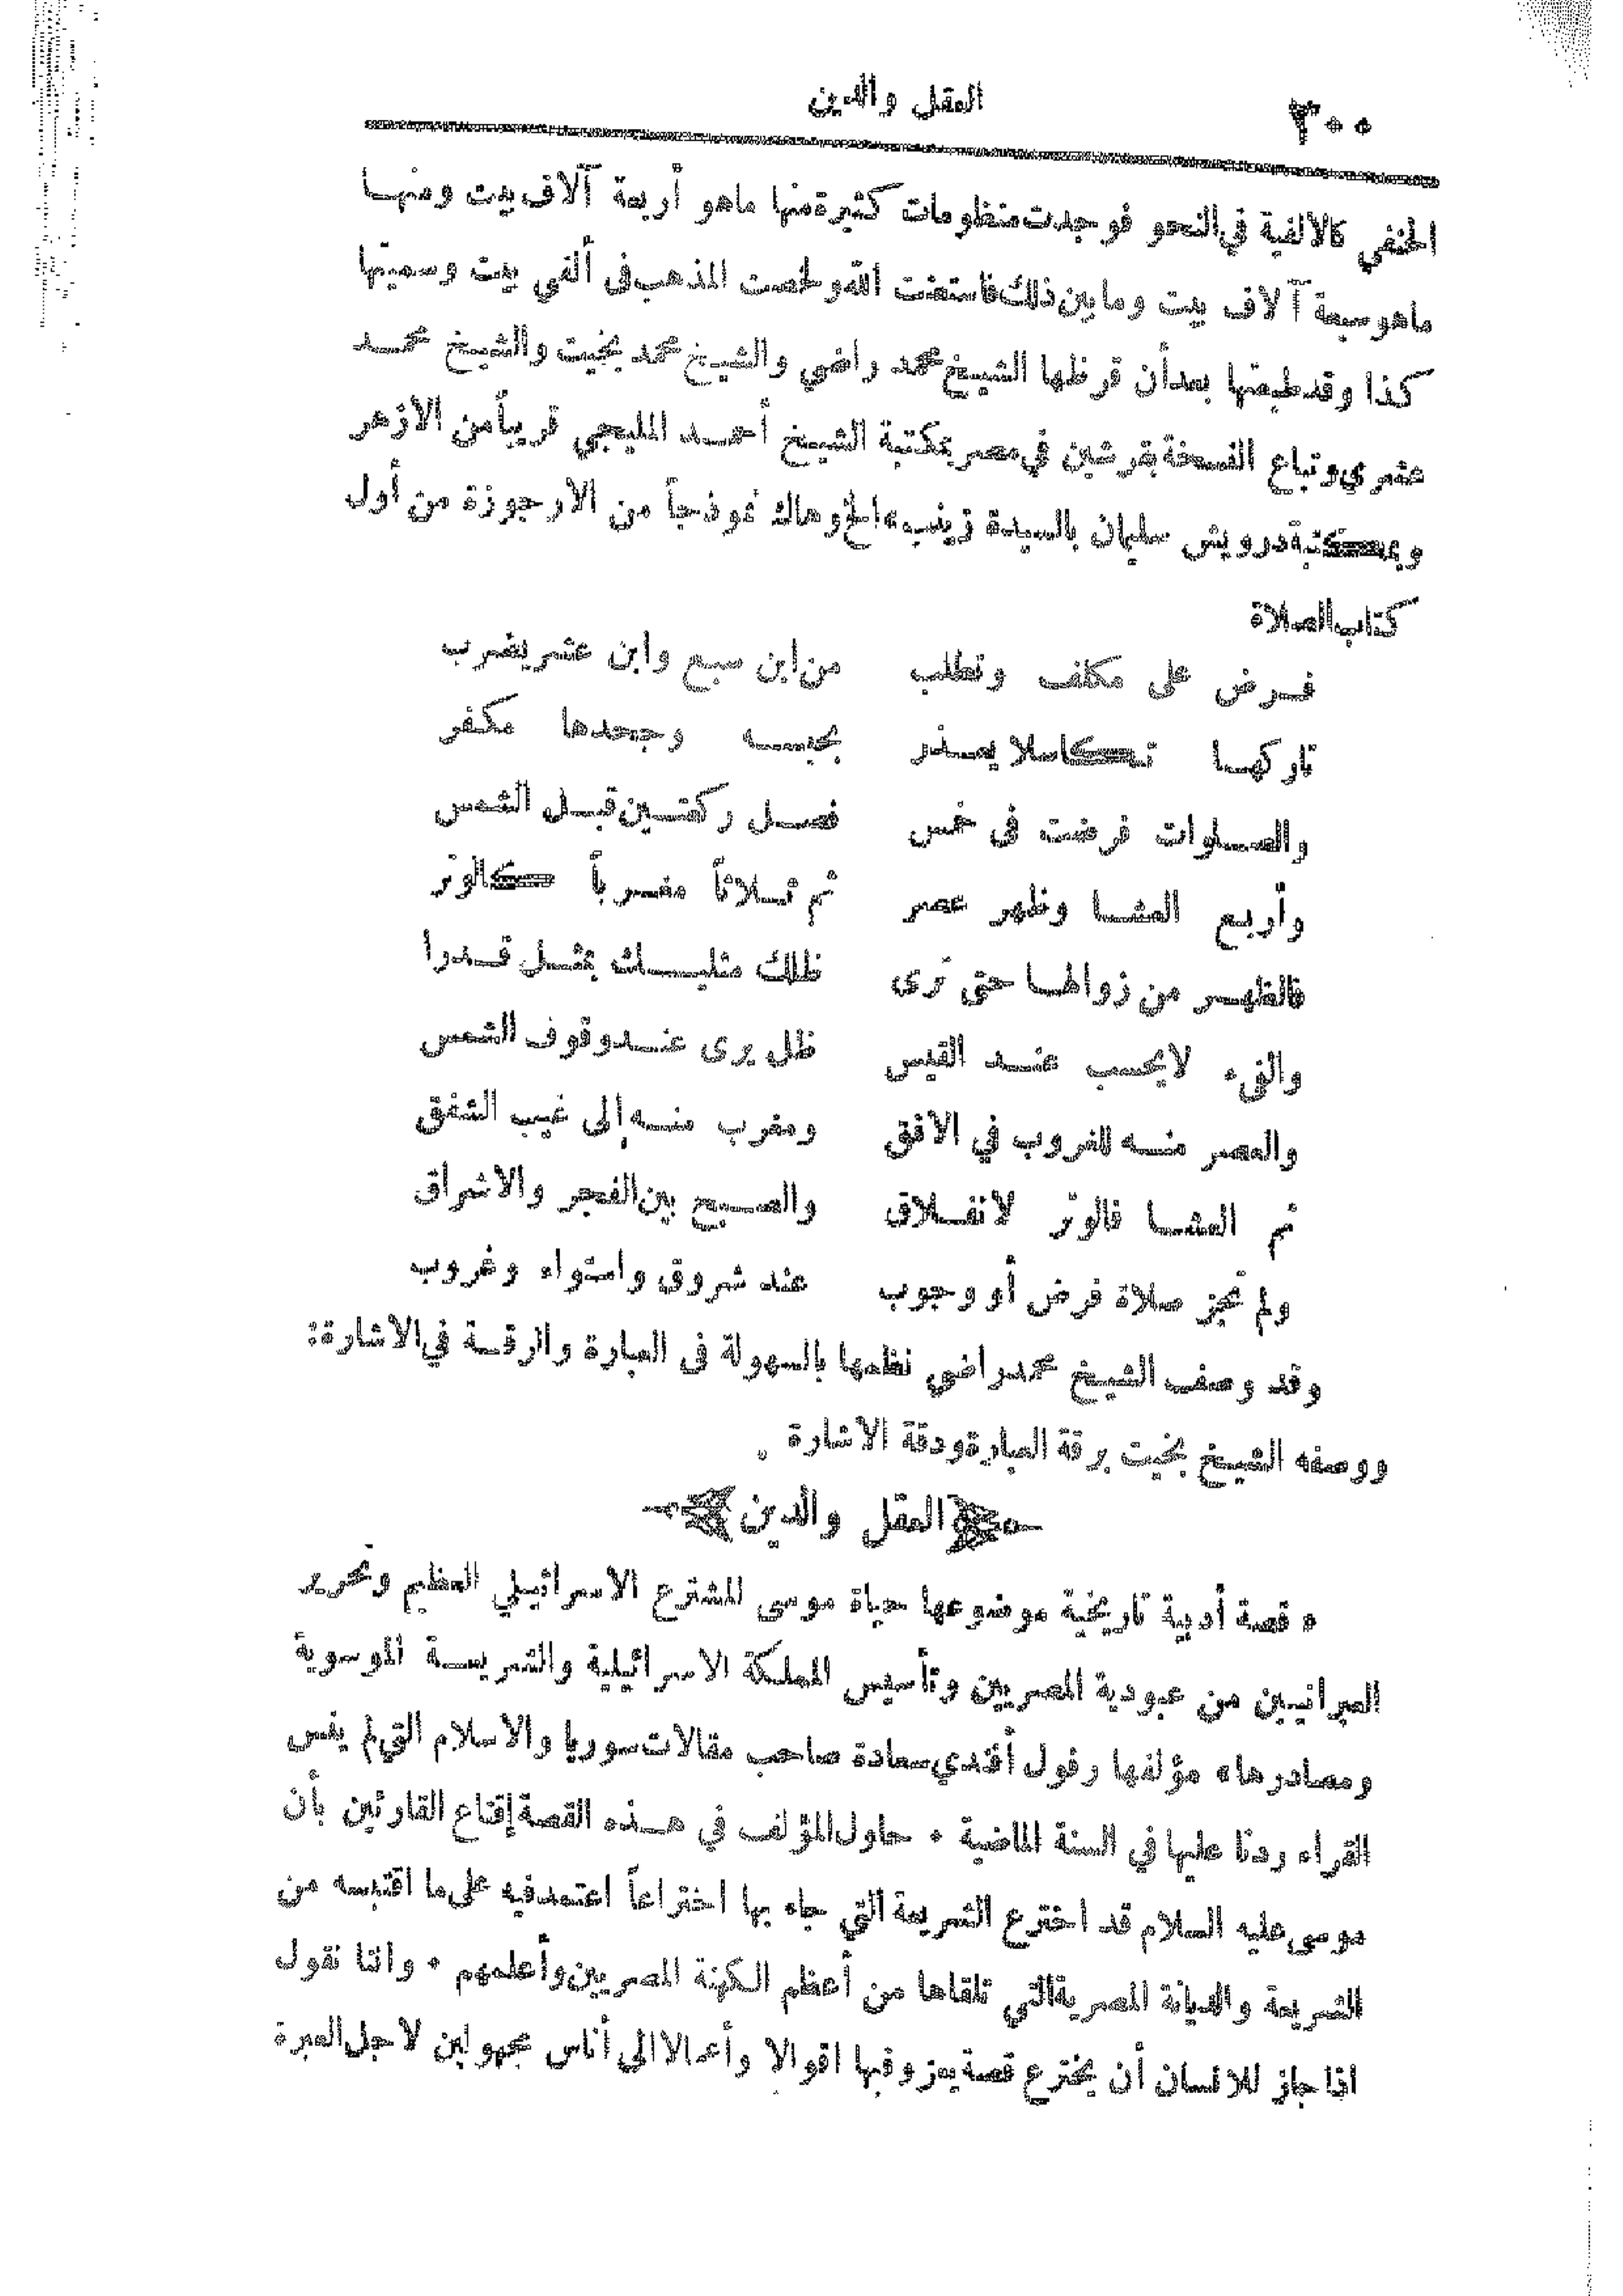 ٣٠٠
العقل والدين
الحنفي كالالفية في النحو فوجدت منظومات كثيرة منها ماهو أربعة آلاف بيت ومنها
ماهو سبعة آلاف بيت وما بين ذلك فاستعنت الله ولخصت المذهب في ألفي بيت وسميتها
كذا وقد طبعتها بعد أن قرظها الشيخ محمد راضي والشيخ محمد بخيت والشيخ محمد
عشري وتباع النسخة بقرشين في مصر بمكتبة الشيخ أحمد المليجي قريباً من الازهر
وبمكتبة درويش سليمان بالسيدة زينب» الخ وهاك نموذجاً من الارجوزة من أول
كتاب الصلاة
فرض على مكلف وتطلب من ابن سبع وابن عشر يضرب
تاركها تكاسلا يعذر بحبسه وجحدها مكفر
والصلوات فرضت في خمس فصل ركعتين قبل الشمس
وأربع العشا وظهر عصر ثم ثلاثاً مغرباً كالوتر
فالظهر من زوالها حتى ترى ظلك مثليك بمثل قدرا
والفيء لا يحسب عند القيس ظل يرى عند وقوف الشمس
والعصر منه للغروب في الافق ومغرب منه إلى غيب الشفق
ثم العشا فالوتر لانفلاق والصبح بين الفجر والاشراق
ولم تجز صلاة فرض أو وجوب عند شروق واستواء وغروب
وقد وصف الشيخ محمد راضي نظمها بالسهولة في العبارة والرقة في الاشارة:
ووصفه الشيخ بخيت برقة العبارة ودقة الاشارة .
العقل والدين
« قصة أدبية تاريخية موضوعها حياة موسى المشترع الاسرائيلي العظيم وتحرير
العبرانيين من عبودية المصريين وتأسيس المملكة الاسرائيلية والشريعة الموسوية
ومصادرها» مؤلفها رفول أفندي سعادة صاحب مقالات سوريا والاسلام التي لم ينس
القراء ردنا عليها في السنة الماضية ٠ حاول المؤلف في هذه القصة إقناع القارئين بأن
موسى عليه السلام قد اخترع الشريعة التي جاء بها اختراعاً اعتمد فيه على ما اقتبسه من
الشريعة والديانة المصرية التي تلقاها من أعظم الكهنة المصريين وأعلمهم ٠ واننا نقول
اذا جاز للانسان أن يخترع قصة يعزو فيها اقوالا وأعمالا الى أناس مجهولين لاجل العبرة